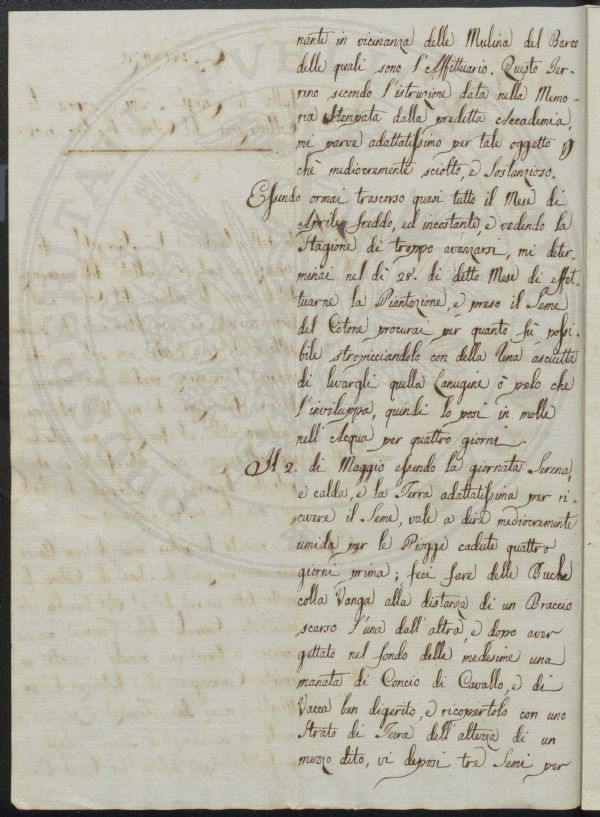 nante in vicinanza delle Mulina del Barco
delle quali sono l'Affittuario. Questo Ter-
reno secondo l'istruzione data nella Memo-
ria Stampata dalla predetta Accademia,
mi parve adattatissimo per tale oggetto p
chè mediocremente sciolto, e Sostanzioso.
Essendo ormai trascorso quasi tutto il Mese di
Aprile freddo, ed incostante, e vedendo la
Stagione di troppo avanzarsi, mi deter-
minai nel dì 28. di detto Mese di effet-
tuarne la Piantazione, e preso il Seme
del Cotone procurai per quanto fù possi-
bile stropicciandolo con della Rena asciutta
di levargli quella Lanugine ò pelo che
l'inviluppa, quindi lo posi in molle
nell'Acqua per quattro giorni.
Il 2. di Maggio essendo la giornata Serena,
e calda, e la Terra adattatissima per ri-
cevere il Seme, vale a dire mediocremente
umida per le Piogge cadute quattro
giorni prima; feci fare delle Buche
colla Vanga alla distanza di un Braccio
scarso l'una dall'altra, e dopo aver
gettato nel fondo delle medesime una
manata di Concio di Cavallo, e di
Vacca ben digerito, e ricopertolo con uno
Strato di Terra dell'altezza di un
mezzo dito, vi deposi tre Semi per